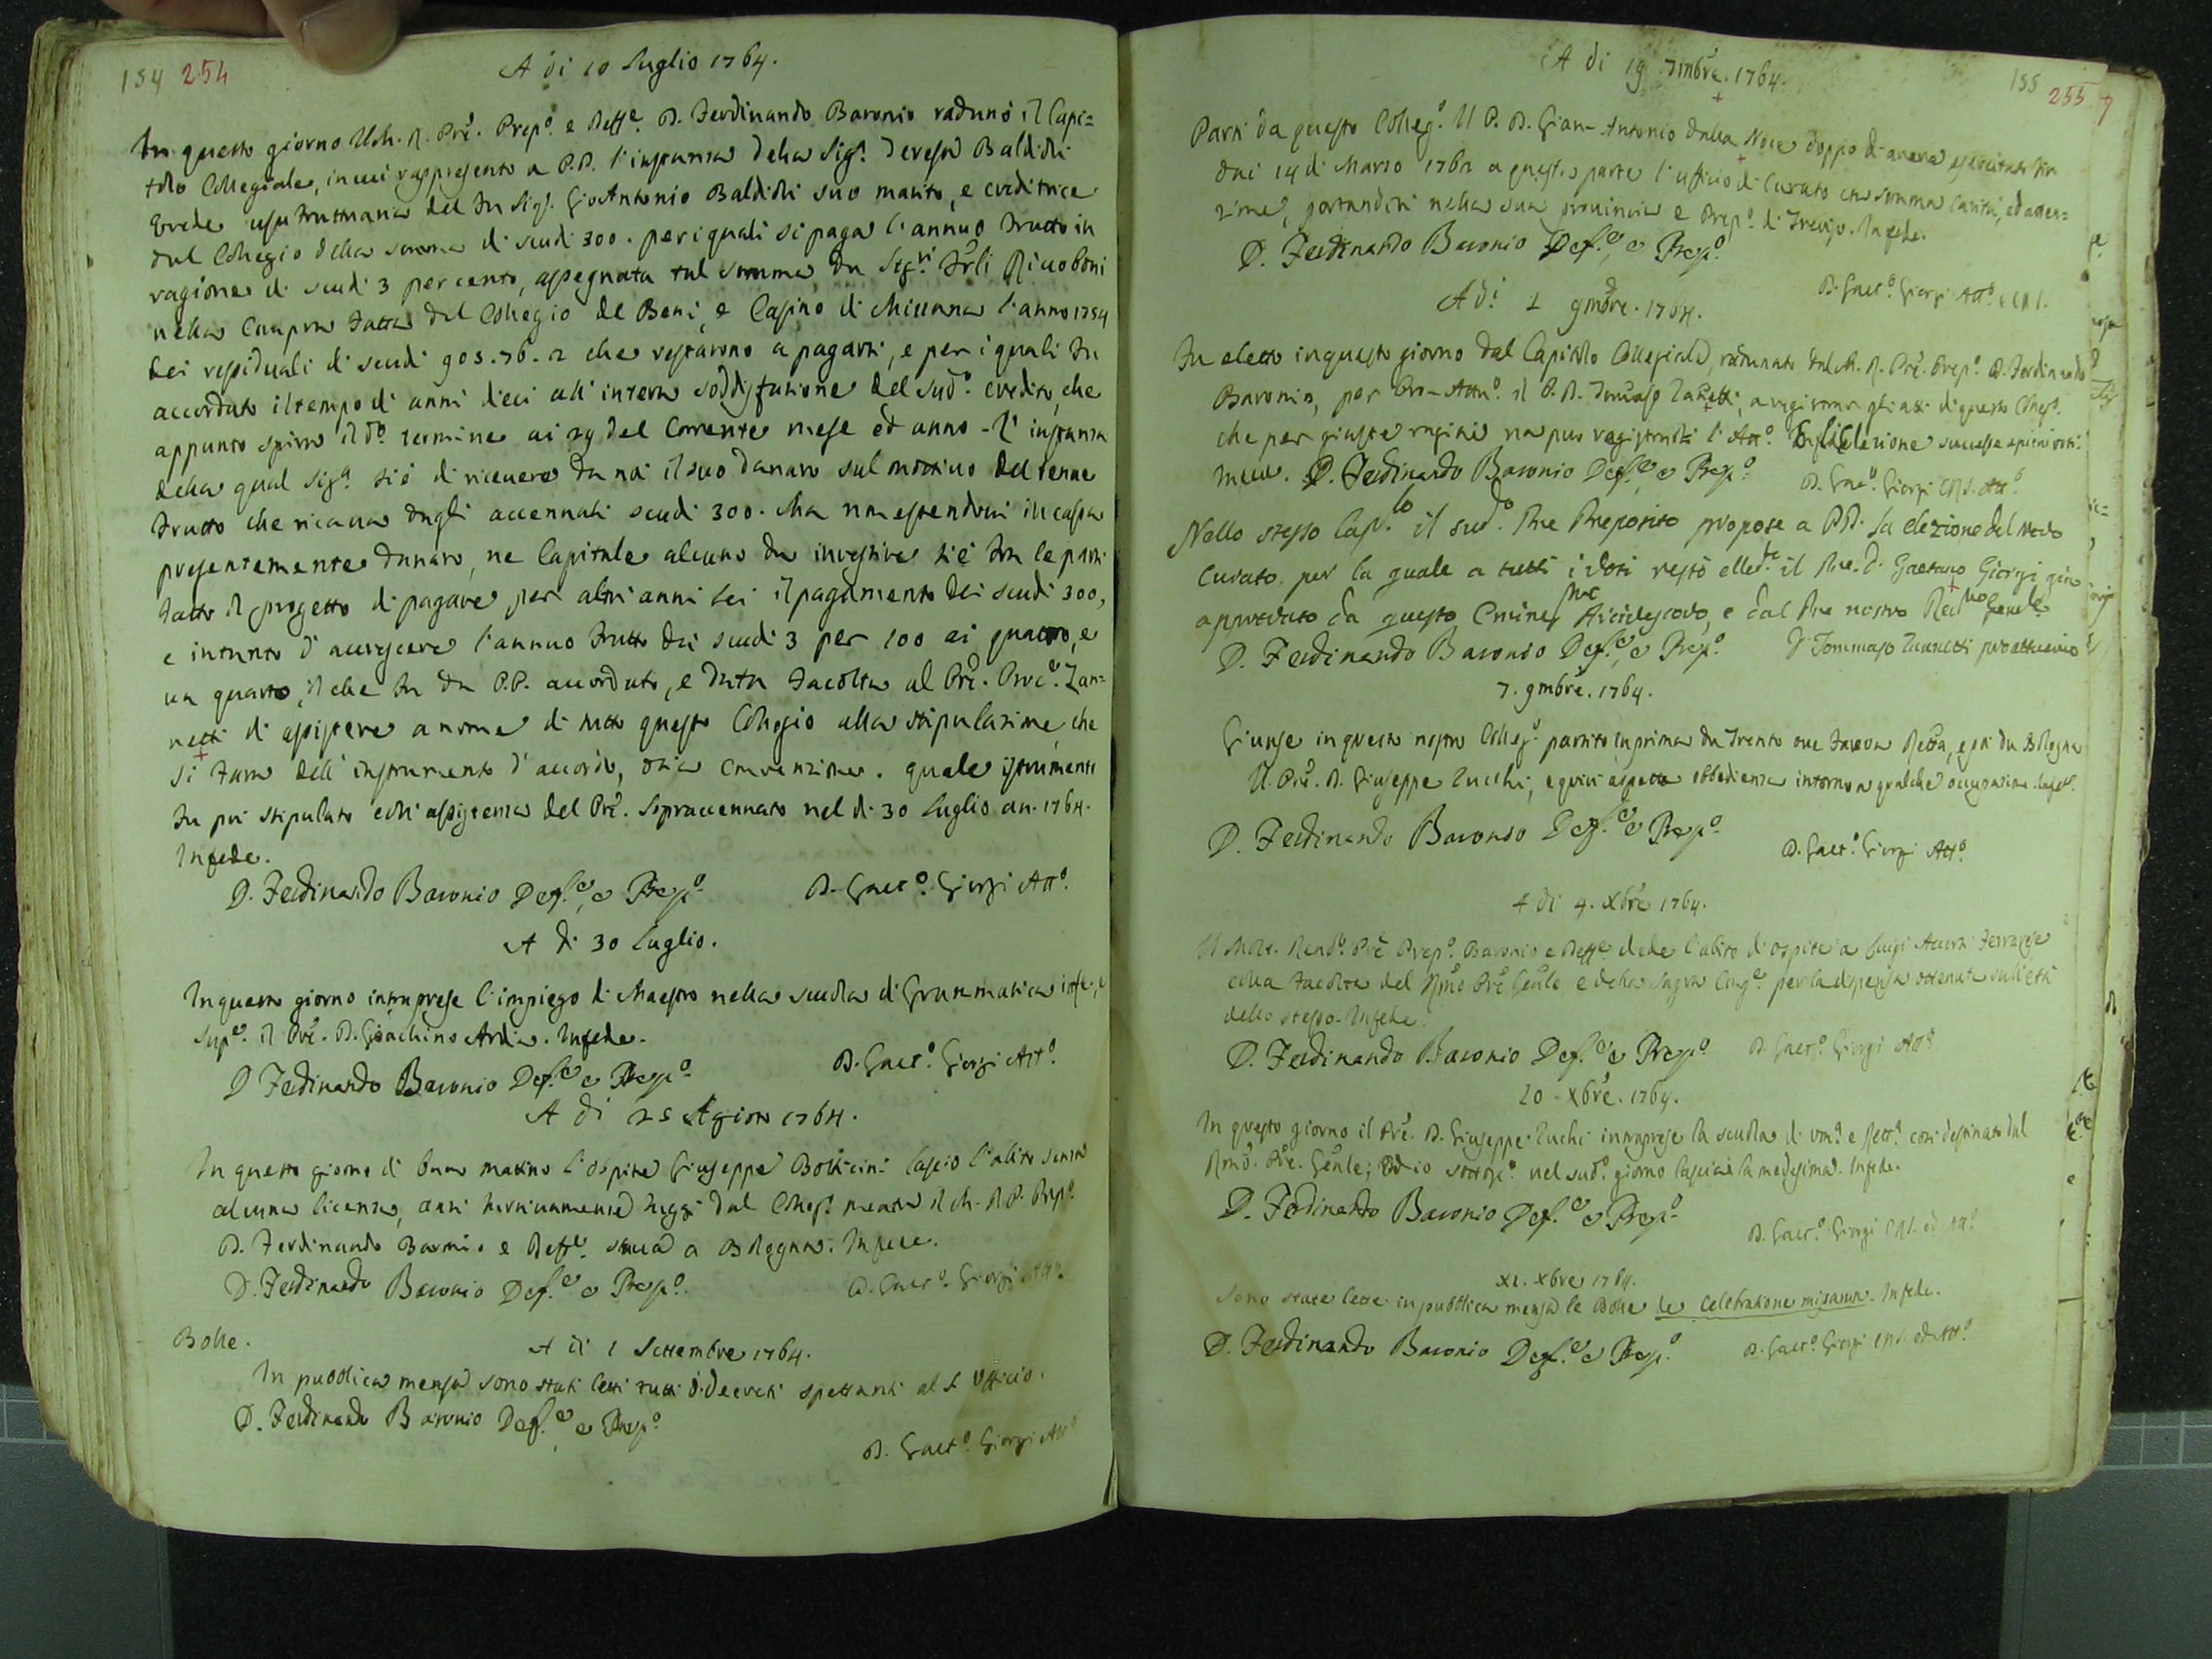 154 254
A di 10 Luglio 1764.
In questo giorno Il M. R. Pre. Prepo. e Def.e D. Ferdinando Baronio radunò il Capi=
tolo Collegiale, in cui rappresentò a P.P. l'instanza della Sig.a Teresa Baldini
Erede usufruttuaria del fu Sig.r Gio Antonio Baldini suo marito, e creditrice
dal Collegio della somma di scudi 300. per i quali si paga l'annuo frutto in
ragione di scudi 3 per cento, assegnata tal somma da Sig.ri Frli Riccoboni
nella Compra fatta dal Collegio de Beni, e Casino di Missana l'anno 1754
dei residuali di scudi 903.76.2 che restarono a pagarsi, e per i quali fu
accordato il tempo di anni dieci all'intera soddisfazione del sud.o credito, che
appunto spira il d.o termine ai 29 del Corrente mese ed anno. L'instanza
della qual Sig.a si è di ricevere da noi il suo danaro sul mottivo del tenue
frutto che ricava dagli accennati scudi 300. Ma non essendovi in cassa
presentemente danaro, ne Capitale alcuno da investire si è fra le parti
fatto il progetto di pagare per altri anni sei il pagamento dei scudi 300,
e intanto d'accrescere l'annuo frutto dei scudi 3 per 100 ai quattro, e
un quarto, il che fu da P.P. accordato, e data facoltà al Pre. Proc.e Zan=
netti di assistere a nome di tutto questo Collegio alla stipulazione, che
si farà dell'instrumento d'accordo, o sia Convenzione. quale istrumento
fu poi stipulato coll'assistenza del Pre. Sopraccennato nel di 30 Luglio an. 1764.
In fede.
D. Ferdinando Baronio Def.e, e Prep.o D. Gaet.o Giorgi Att.o
A di 30 Luglio.
In questo giorno intraprese l'impiego di Maestro nella scuola di Grammatica infe., e
Sup.e il Pre. D. Gioachino Ardia. In fede.
D Ferdinando Baronio Def.e e Prep.o D. Gaet.o Giorgi Att.o
A di 25 Agosto 1764.
In questo giorno di buon mattino l'ospite Giuseppe Botticini lasciò l'abito senza
alcuna licenza, anzi furtivamente fuggì dal Colleg.o mentre il M. R. P. Prep.o
D. Ferdinando Baronio e Def.e stava a Bologna. In fede.
D. Ferdinando Baronio Def.e e Prep.o D. Gaet.o Giorgi Att.o
Bolle. A di 1 Settembre 1764.
In pubblica mensa sono stati letti tutti i decreti spettanti al S. Officio.
D. Ferdinando Baronio Def.e e Prep.o
D. Gaet.o Giorgi Att.o
155 255 7
A di 19 7mbre. 1764.
Partì da questo Colleg.o Il P. D. Gian-Antonio dalla Noce doppo di avere esercitato fin
dai 14 di Marzo 1762 a questa parte l'ufficio di Curato con somma carità, ed atten=
zione, portandosi nella sua provincia e Prep.o di Treviso. In fede.
D. Ferdinando Baronio Def.e, e Prep.o
D. Gaet.o Giorgi Att.o e CRS.
A di 1 9mbre. 1764.
Fu eletto in questo giorno dal Capitolo Collegiale, radunato dal M. R. Pre. Prep.o D. Ferdinando
Baronio, per Pro-Attu.o il P. D. Tomaso Zanetti, a registrare gli atti di questo Colleg.o
che per giuste ragioni non può registrarli l'Att.o Elezione successe a pieni voti.
In fede. D. Ferdinando Baronio Def.e, e Prep.o D. Gae.o Giorgi CRS. Att.o
Nello stesso Cap.lo il sud.o Pre Preposito propose a P.P. la elezione del novo
Curato, per la quale a tutti i voti restò elle il Pre. D. Gaetano Giorgi già
approvato da questo Arcivescovo, e dal Pre nostro Rev.mo Genele
D. Ferdinando Baronio Def.e, e Prep.o D. Tommaso Zannetti proattuario
7. 9mbre. 1764.
Giunse in questo nostro Colleg.o partito in prima da Trento ove faceva Retta, e poi da Bologna
Il Pre. D. Giuseppe Zucchi, e quivi aspetta obbedienza intorno a qualche occupazione. In fede.
D. Ferdinando Baronio Def.e e Prep.o
D. Gaet.o Giorgi Att.o
A di 4. Xbre 1764.
Il Molt. Rend.o Pre Prep.o Baronio e Def.e diede l'abito d'ospite a Luigi Ferrarese
colla facoltà del Rmo Pre Genle e della Sagra Cong.e per la dispensa ottenuta sull'età
dello stesso. In fede.
D. Ferdinando Baronio Def.e e Prep.o D. Gaet.o Giorgi Att.o
20. Xbre. 1764.
In questo giorno il Pre. D. Giuseppe Zuchi intraprese la scuola di Um.a e Rett.a così destinato dal
Rmo. Pre. Genle; Ed io sottosc.o nel sud.o giorno lasciai la medesima. In fede.
D. Ferdinando Baronio Def.e e Prep.o
D. Gaet.o Giorgi CRS. ed Att.o
XI. Xbre 1764.
Sono state lette in pubblica mensa le Bolle de Celebratione missarum. In fede.
D. Ferdinando Baronio Def.e e Prep.o D. Gaet.o Giorgi CRS. ed Att.o